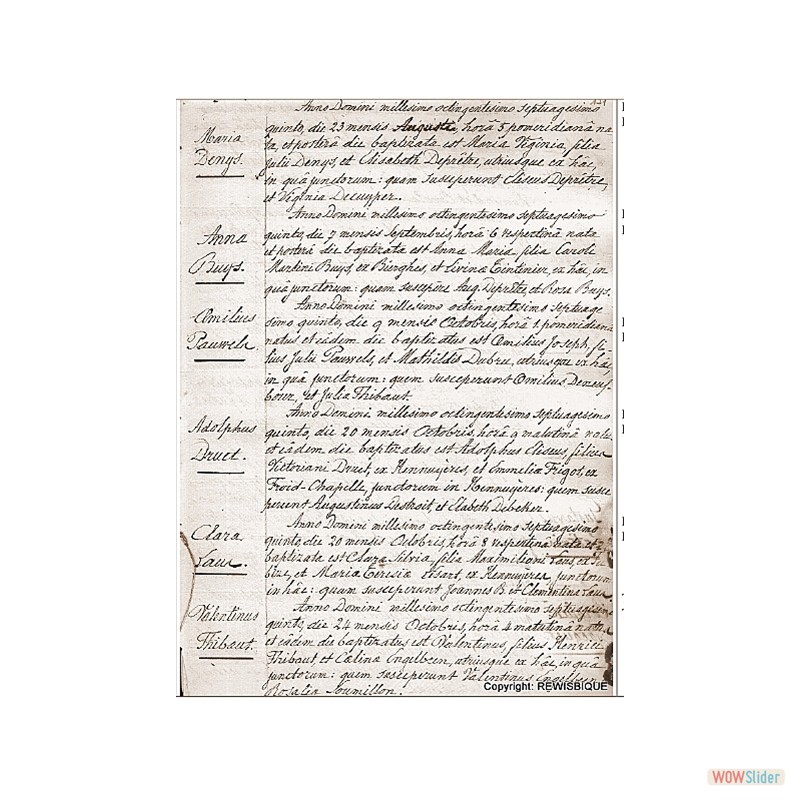 Anno Domini millesimo octingentesimo septuagesimo
Maria
Denys.
quinto, die 23 mensis Augusti, horâ 5 pomeridianâ na
ta, et posterâ die baptizata est Maria Virginia, filia
Julii Denys, et Elisabeth Deprêtre, utriusque ex hâc,
in quâ junctorum: quam susceperunt Eliseus Deprêtre,
et Virginia Decuyper.
Anno Domini millesimo octingentesimo septuagesimo
Anna
Buys.
quinto, die 7 mensis Septembris, horâ 6 vespertinâ nata
et posterâ die baptizata est Anna Maria, filia Caroli
Martini Buys, ex Bierghes, et Livinæ Tintinier, ex hâc, in
quâ junctorum: quam suscepere Aug. Deprêtre et Rosa Buys.
Anno Domini millesimo octingentesimo septuage
Emilius
Pauwels.
simo quinto, die 9 mensis Octobris, horâ 1 pomeridianâ
natus et eâdem die baptizatus est Emilius Joseph, fi
lius Julii Pauwels, et Mathildis Dubru, utriusque ex hâc,
in quâ junctorum: quem susceperunt Emilius
et Julia Thibaut.
Anno Domini millesimo octingentesimo septuagesimo
Adolphus
Druet.
quinto, die 20 mensis Octobris, horâ 9 matutinâ natus
et eâdem die baptizatus est Adolphus Eliseus, filius
Victoriani Druet, ex Hennuyeres, et Emmelia Frigot, ex
Froid-Chapelle, junctorum in Hennuyeres: quem susce
perunt Augustinus Destrait, et Elabeth Debecker.
Anno Domini millesimo octingentesimo septuagesimo
Clara
Laus.
quinto, die 20 mensis Octobris, horâ 8 vespertinâ nata et
baptizata est Clara Silvia, filia Maximiliani Laus, ex Tu
bize, et Maria Teresia ex Hennuyeres, junctorum
in hâc: quam susceperunt Joannes B. et Clementina Laus
Anno Domini millesimo octingentesimo septuagesimo
Valentinus
Thibaut.
quinto, die 24 mensis Octobris, horâ 4 matutinâ natus
et eâdem die baptizatus est Valentinus, filius Henrici
Thibaut, et Cœlina Engelbeen, utriusque ex hâc, in quâ
junctorum: quem susceperunt Valentinus Engelbeen
Rosalia Soumillon.
Copyright: REWISBIQUE
WOWSlider